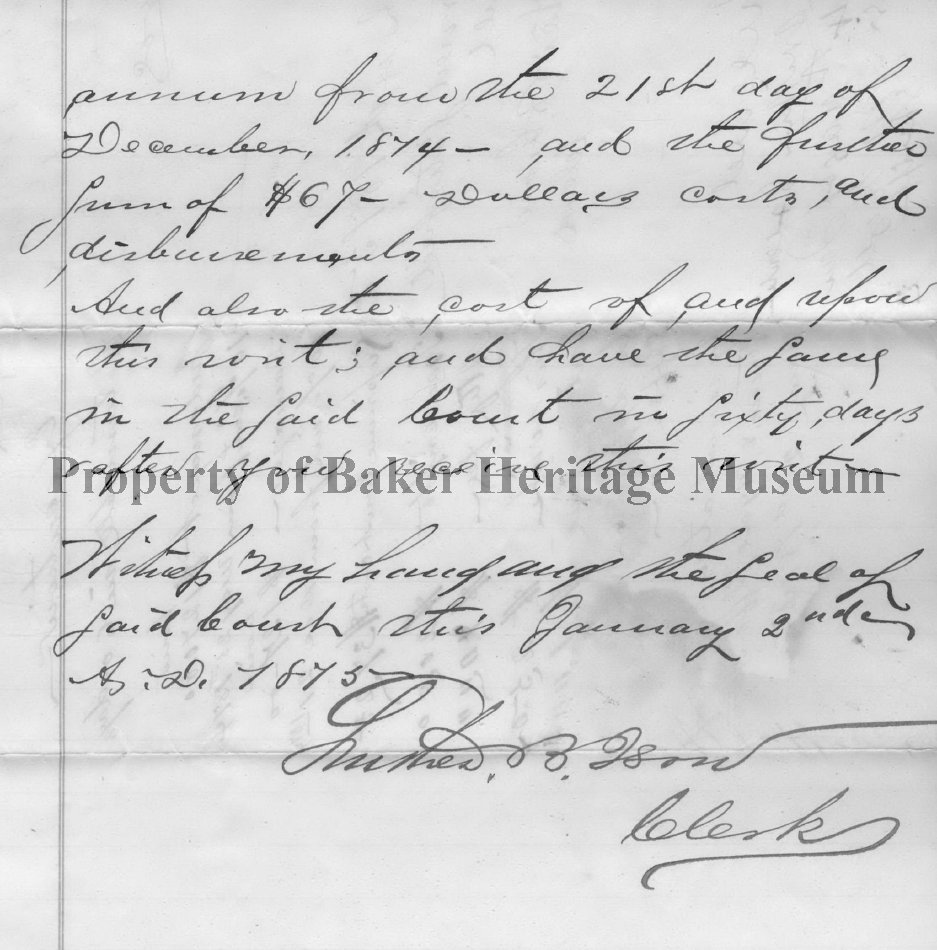 annum from the 21st day of
December, 1874 — and the further
Sum of $67 — Dollars costs, and
disbursements
And also the cost of and upon
this writ; and have the same
in the said Court in Sixty days
after you receive this writ —
Property of Baker Heritage Museum
Witness my hand and the Seal of
Said Court this January 2nd
A. D. 1875
Luther B. Ison
Clerk